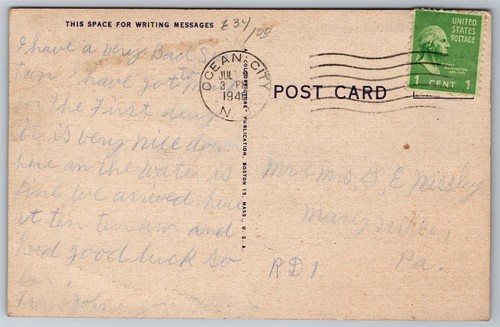 THIS SPACE FOR WRITING MESSAGES
£34/00
I have a very Bad Sun
tan I have got
on the First day
it is very nice down
here in the water is
fine we arrived here
at ten ten am and
had good luck so
OCEAN CITY
JUL
3 PM
194
N
A "COLOURPICTURE" PUBLICATION, BOSTON 15, MASS., U. S. A.
POST CARD
UNITED
STATES
POSTAGE
1 CENT 1
Mr & Mrs D, E Nissley
R D 1
Pa.